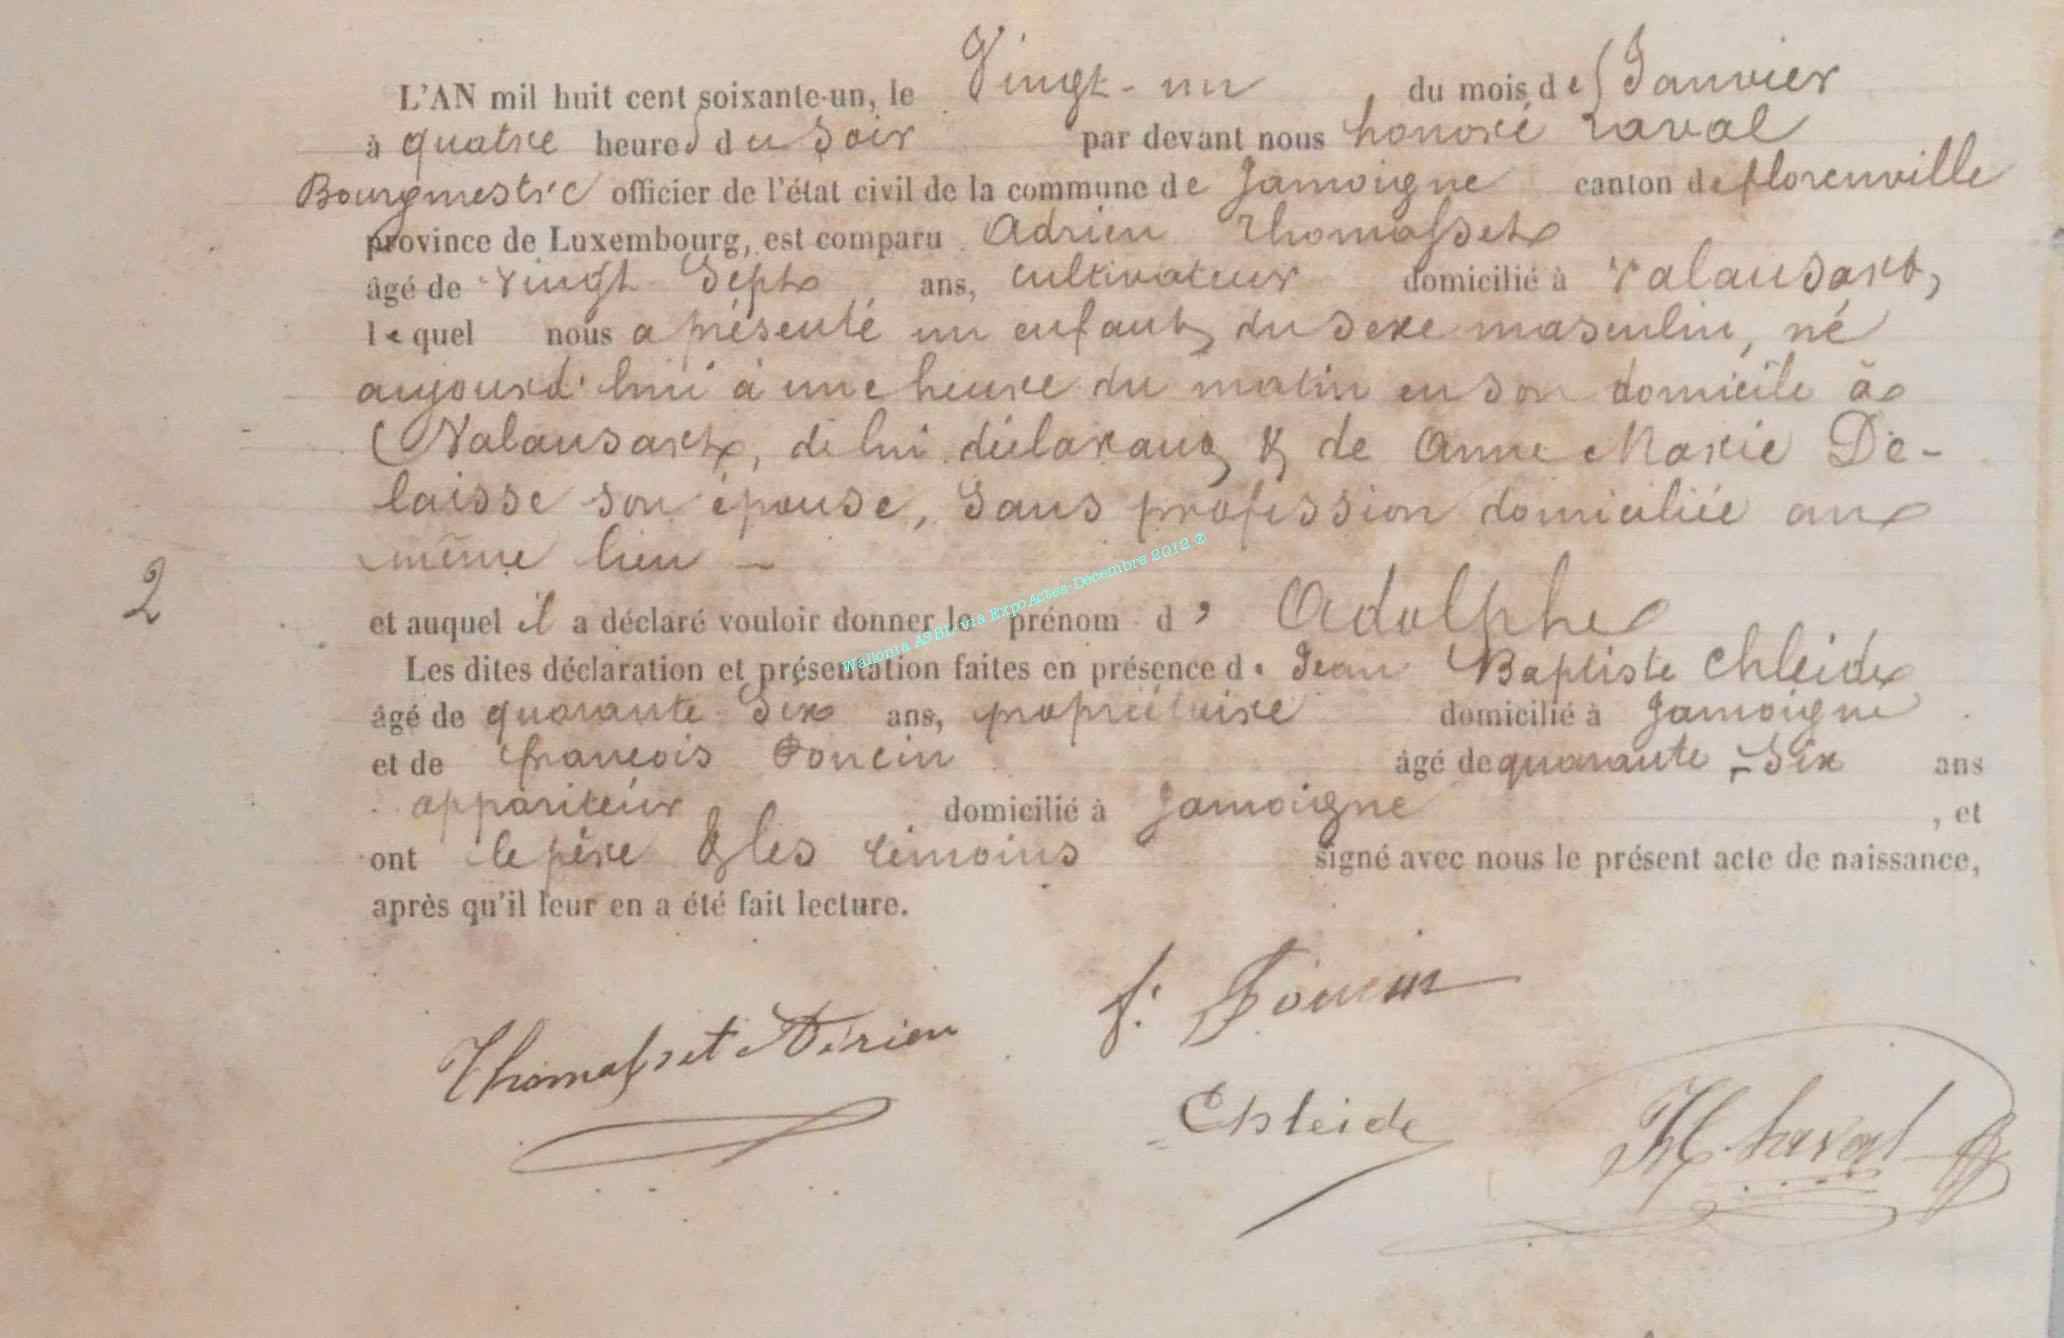 L'AN mil huit cent soixante-un, le Vingt-un du mois de Janvier
à quatre heures du soir par devant nous honoré Laval
Bourgmestre officier de l'état civil de la commune de Jamoigne canton de florenville
province de Luxembourg, est comparu Adrien Thomasset
âgé de vingt Sept ans, cultivateur domicilié à Valansart,
lequel nous a présenté un enfant du sexe masculin, né
aujourd'hui à une heure du matin en son domicile à
Valansart, de lui déclarant & de Anne Marie De-
laisse son épouse, sans profession domiciliée au
même lieu –
2
et auquel il a déclaré vouloir donner le prénom d' Adolphe
Les dites déclaration et présentation faites en présence de Jean Baptiste Chleide
âgé de quarante Six ans, propriétaire domicilié à Jamoigne
et de françois Poncin âgé de quarante-Six ans
appariteur domicilié à Jamoigne , et
ont le père & les témoins signé avec nous le présent acte de naissance,
après qu'il leur en a été fait lecture.
Wallonia ASBL via ExpoActes-Décembre 2012 ©
f: Poncin
Thomasset Adrien
Chleide
H. Laval